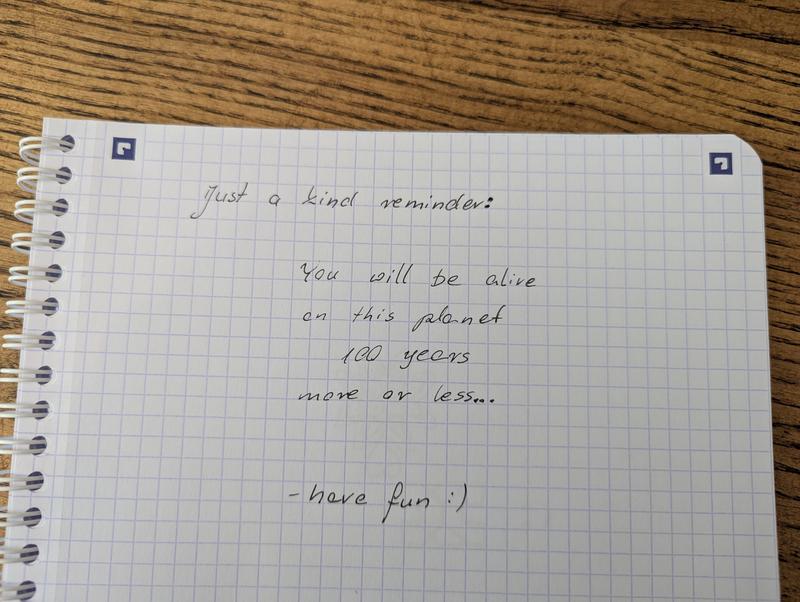 Just a kind reminder:
You will be alive
on this planet
100 years
more or less...
- have fun :)